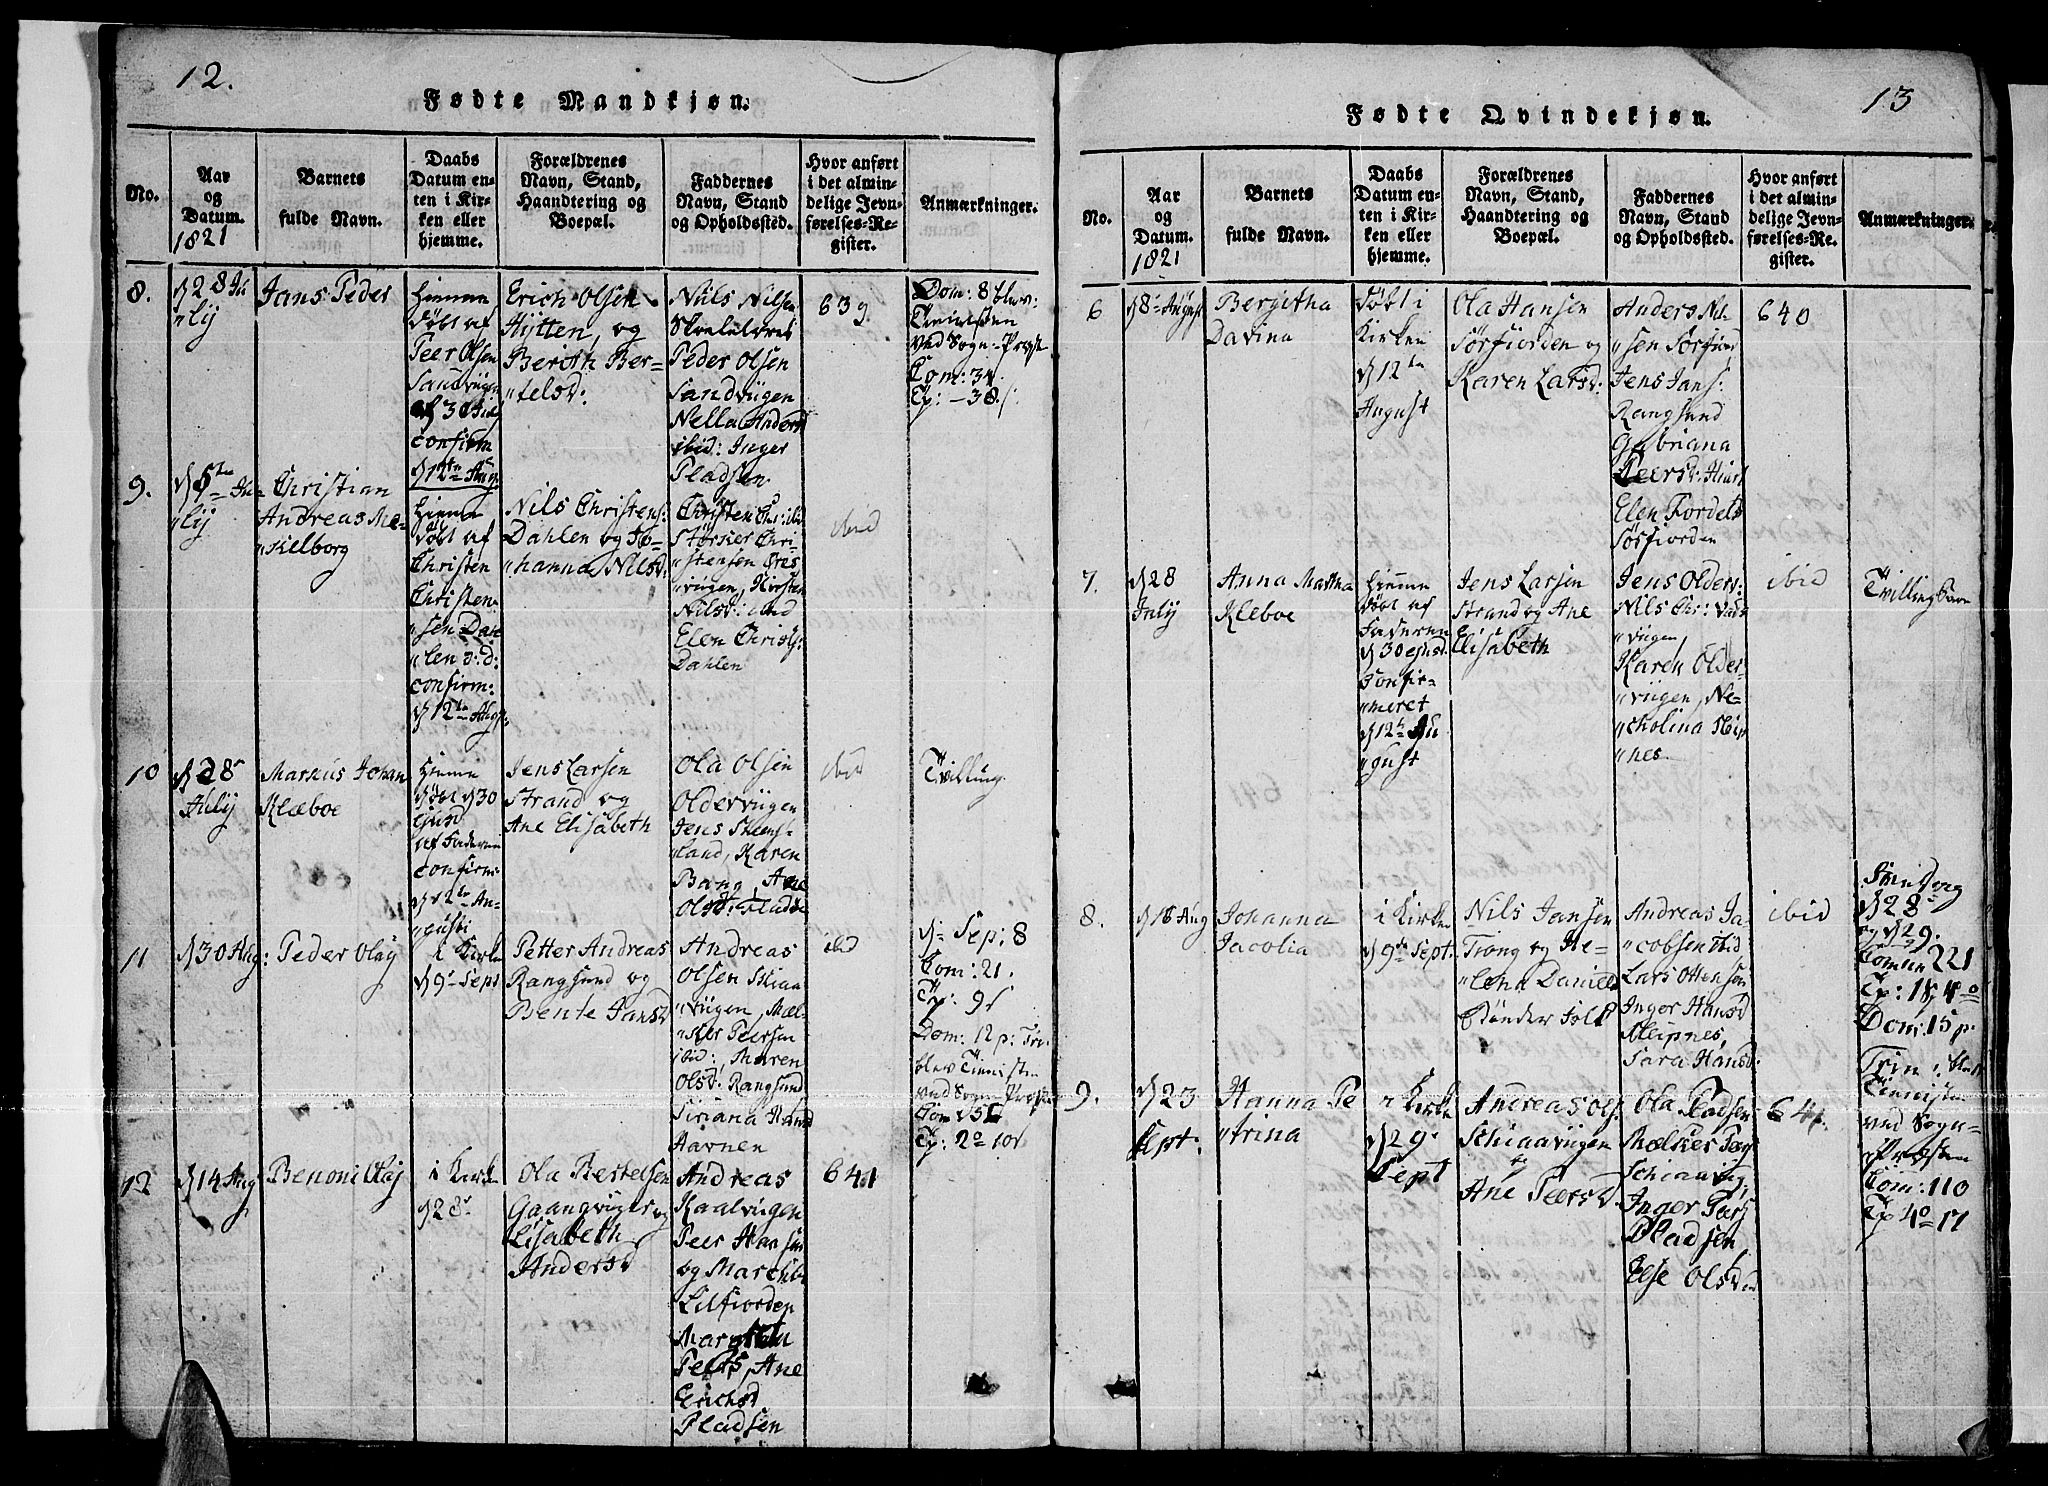 12.
Fødte Mandkjøn.
No.
Aar
og
Datum.
1821
Barnets
fulde Navn.
Daabs
Datum en-
ten i Kir-
ken eller
hjemme.
Forældrenes
Navn, Stand,
Haandtering og
Boepæl.
Faddernes
Navn, Stand
og Opholdssted.
Hvor anført
i det almin-
delige Jevn-
førelses-Re-
gister.
Anmærkninger.
8.
28 Ju
"lij
Jans Peder
Hiemme
døbt af
Peer Olsen
Sandvigen
30 Jul
confirm
12te Aug
Erich Olsen
Hytten, og
Berith Ber-
"telsd:
Nils Nilsen
Peder Olsen
Sandvigen
Nella Anders
ibid: Inger
Pladsen
639
Dom: 8
ved Sogn-Præst
Com: 34
Tp: -38
9.
5te Ju-
"lij
Christian
Andreas Me-
"kelborg
Hiemme
døbt af
Christen
Christen-
"sen Dah-
"len d: d:
confirm:
12te Aug:
Nils Christens:
Dahlen og Jo-
"hanna Nilsd:
Christen Chr: ibid
Størker Chri-
"stensen Gres
"viigen, Kirsten
Nilsd: ibid
Elen Christ:
Dahlen
ibid
10
28
Julij
Markus Johan
Klæboe
Hiemme
døbt 30
ejusd
af Faderen
confirm
12te Au-
"gusti
Jens Larsen
Strand og
Ane Elisabeth
Ola Olsen
Olderviigen
Jens Steens-
"land, Karen
Bang, Ane
Olsd: Pladse
ibid
Tvilling
11
30 Aug:
Peder Olaj
i Kirken
9 Sept
Petter Andreas
Rangsund og
Bente Jansd
Andreas
Olsen Skiaa
"viigen, Mæl-
"ker Peersen
ibid: Maren
Olsd: Rangsund
Siriana Hansd
Havnen
ibid
Sep: 8
Com: 21.
Tp: 9
Dom: 12 p: Tri:
blev Tienisten
ved Sogn-Præst
Com 156
Tp: 2 10
12
14 Aug
Benoni Olaj
i Kirken
28
Ola Bertelsen
Gaasvigen og
Lisabeth
Andersd
Andreas
Kaalviigen
Peer Hansen
og Marchu
Lilfiorden
Margreta
Peers, Ane
Erichsd
Pladsen
641
13
Fødte Qvindekjøn.
No.
Aar
og
Datum.
1821
Barnets
fulde Navn.
Daabs
Datum en-
ten i Kir-
ken eller
hjemme.
Forældrenes
Navn, Stand,
Haandtering og
Boepæl.
Faddernes
Navn, Stand
og Opholdssted.
Hvor anført
i det almin-
delige Jevn-
førelses-Re-
gister.
Anmærkninger.
6
8 August
Bergitha
Davina
Døbt i
Kirken
12te
August
Ola Hansen
Sørfiorden og
Karen Larsd:
Anders Nil-
"sen Sørfiord
Jens Jans:
Rangsund
Gabriana
Peersd: Hiort
Elen Fordels
Sørfiorden
640
7.
28
Julij
Anna Martha
Kleboe
Hiemme
døbt af
Faderen
30 ejusd
Confir-
"meret
12te Au
"gust
Jens Larsen
Strand og Ane
Elisabeth
Jens Olders:
Nils Chr:
"viigen,
Karen Older-
"viigen, Ne-
"cholina Skip
"nes.
ibid
Tvilling
8.
18 Aug
Johanna
Jacolia
i Kirken
9de Sept.
Nils Jansen
Trong og He-
"lena Daniels
Bønder Folk
Andreas Ja-
"cobsen ibid
Lars Ottensen
Inger Hansd
Skipnes,
Sara Hansd:
ibid
28
og 29.
Comm 221
Tp: 18
Dom: 15 p:
Trin: blev
Tienisten
ved Sogn-
Præsten
Com: 110
Tp 4 17
9.
23
Sept:
Hanna Pe
"trina
i Kirken
29
Sept
Andreas Ols:
Schiaaviigen
og
Ane Peersd
Ola Pladsen
Mælker Peers
Schiaaviig,
Inger Pers
Pladsen
Else Olsd
641.